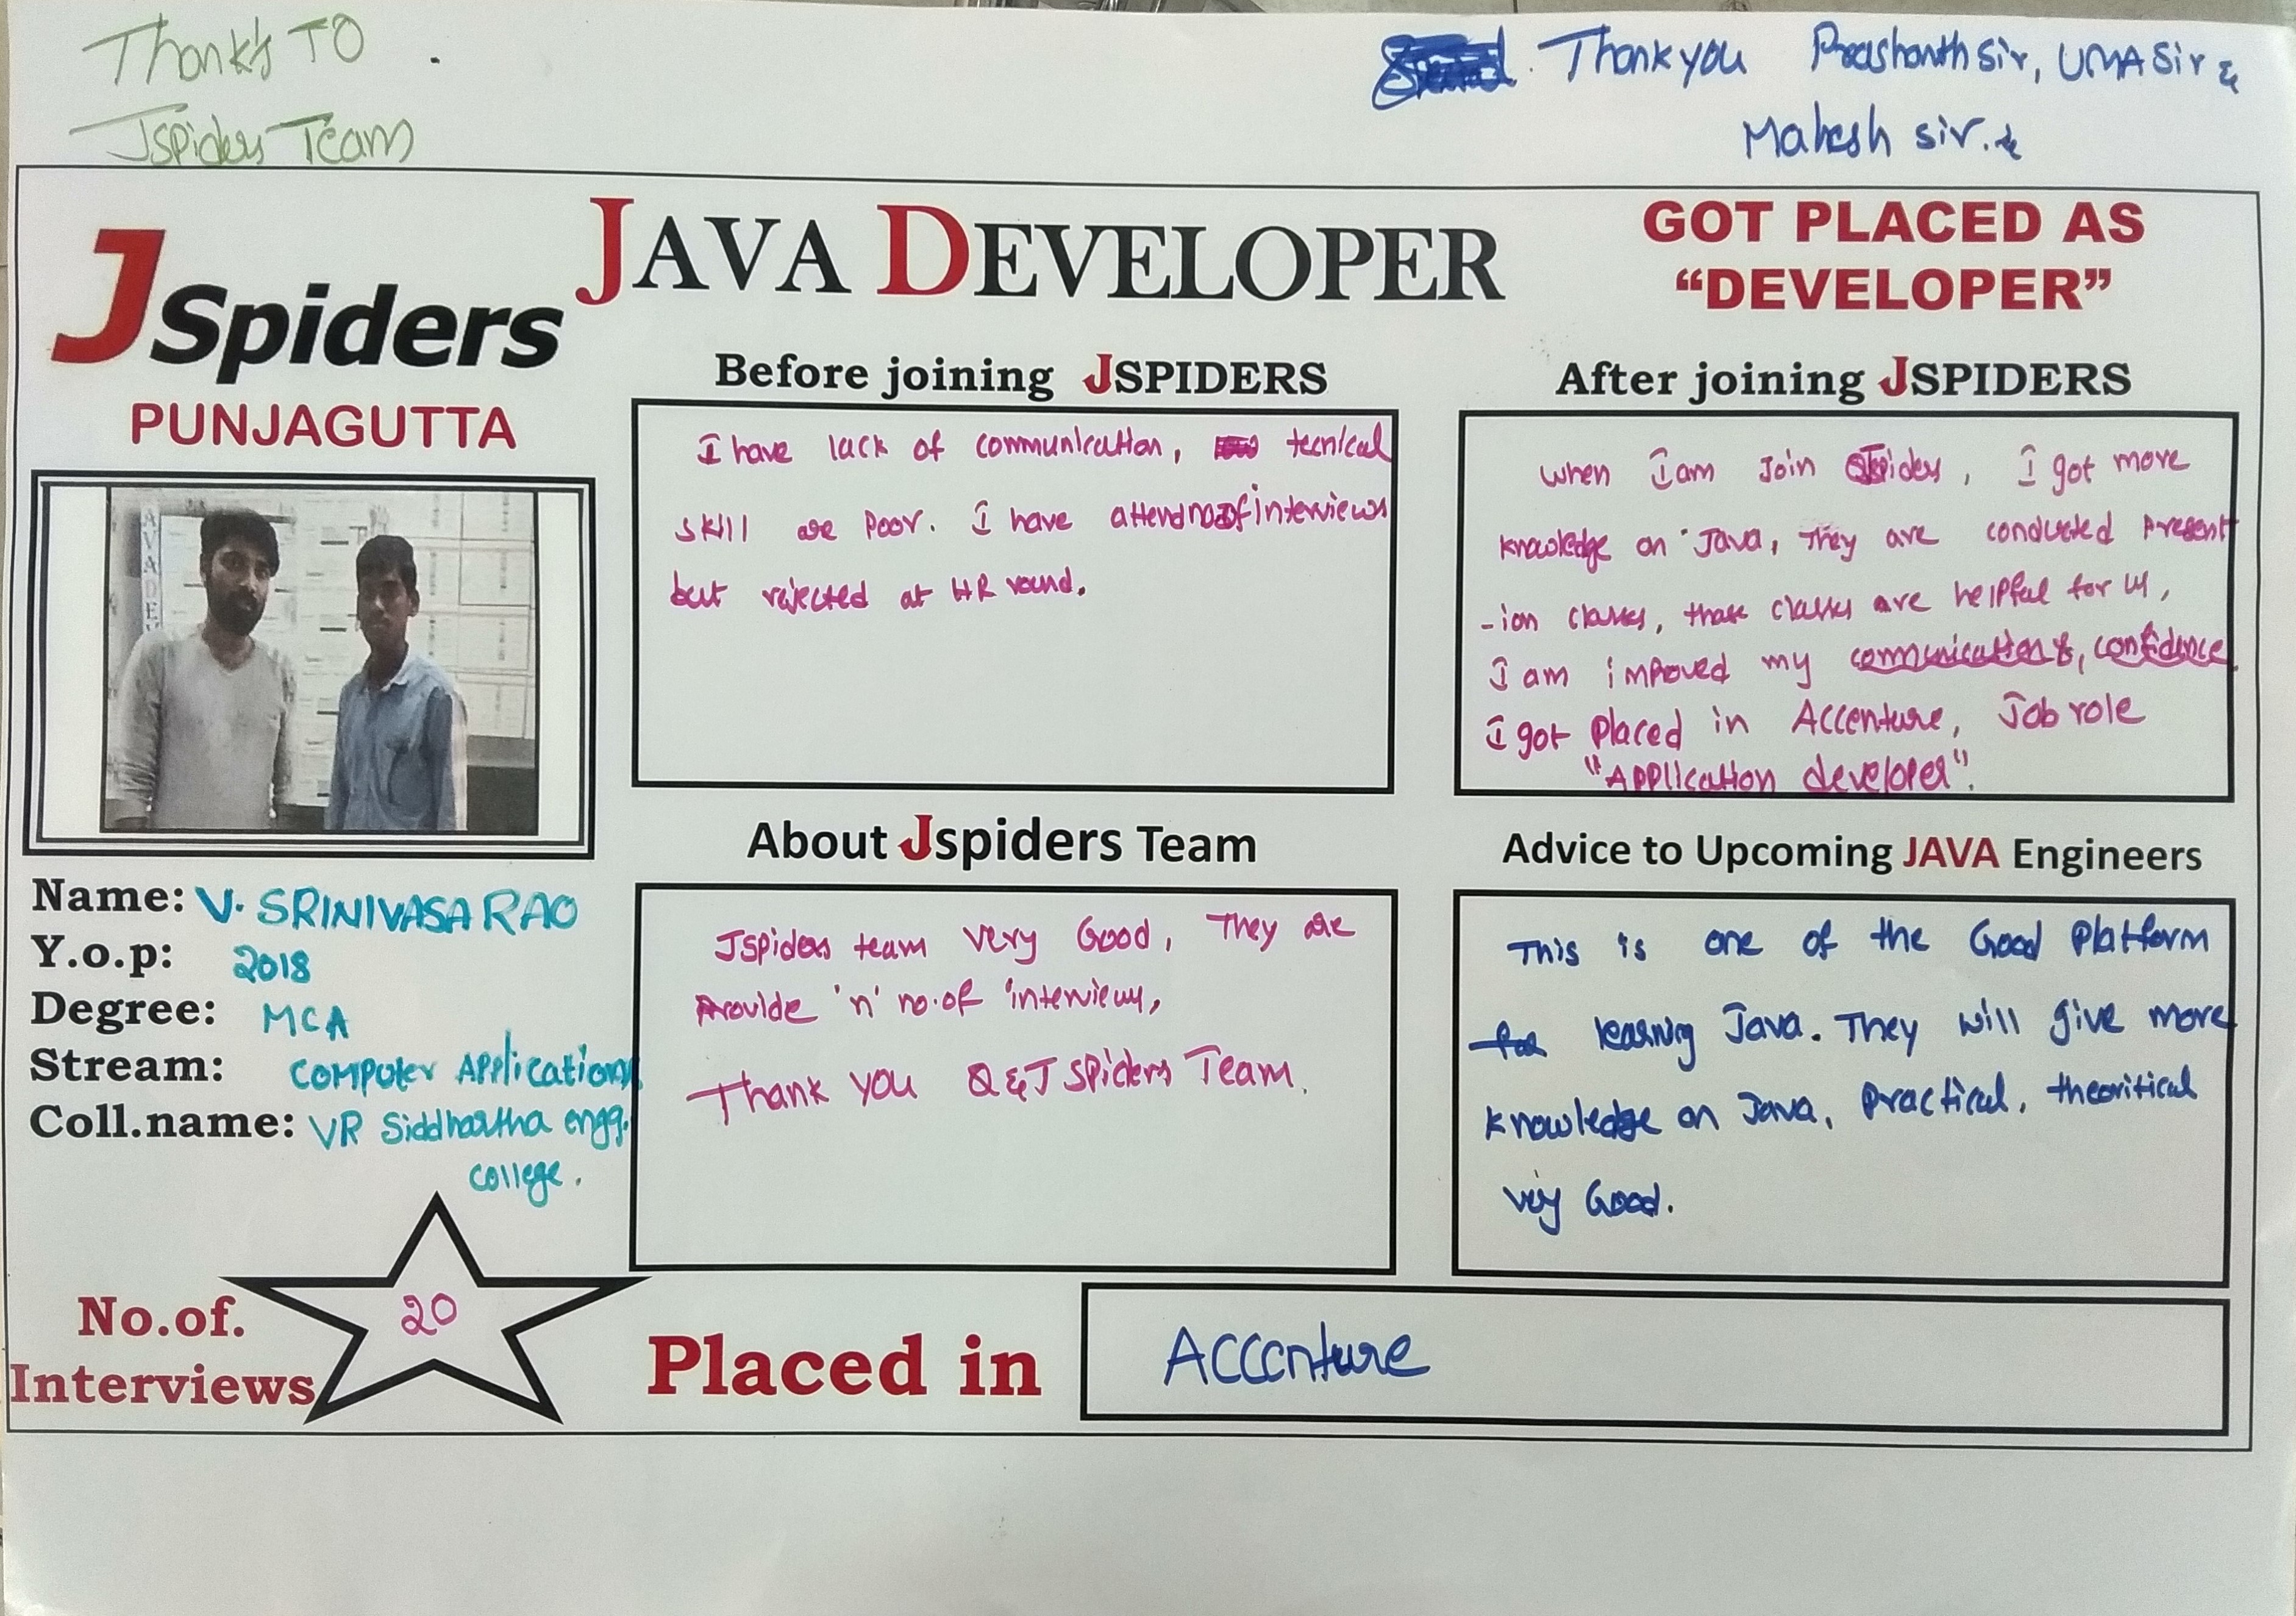 Thanks TO
Jspiders Team
Thank you Prashanth Sir, UMA Sir &
Mahesh sir. &
JSpiders
PUNJAGUTTA
JAVA DEVELOPER
GOT PLACED AS
“DEVELOPER”
Before joining JSPIDERS
I have lack of communication, tecnical
skill are Poor. I have attend no of interviews
but rejected at HR round.
After joining JSPIDERS
when I am Join Spiders, I got more
knowledge on Java, They are conducted Present
-ion classes, those classes are helpful for us,
I am improved my communication &, confidence.
I got placed in Accenture, Job role
"Application developer".
Name: V. SRINIVASA RAO
Y.o.p: 2018
Degree: MCA
Stream: Computer Applications
Coll.name: VR Siddhartha engg.
college.
No.of.
Interviews
20
About Jspiders Team
Jspiders team very Good, They are
Provide 'n' no.of interviews,
Thank you Q & J SPiders Team.
Advice to Upcoming JAVA Engineers
This is one of the Good Platform
for learning Java. They will give more
knowledge on Java, Practical, theoritical
very Good.
Placed in
Accenture